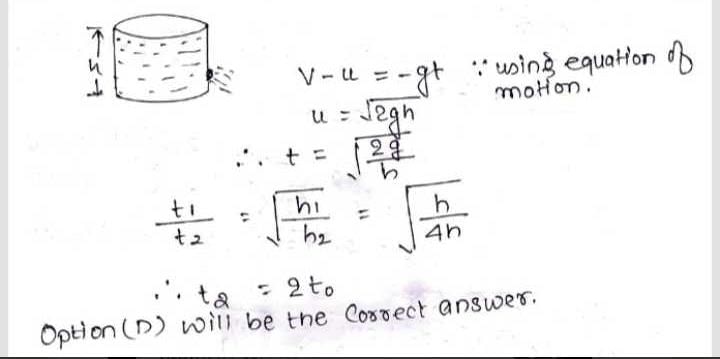 h
V - u = -gt ∵ using equation of motion.
u = √2gh
∴ t = √(2g/h)
t1/t2 = √(h1/h2) = √(h/4h)
∴ t2 = 2to
Option (D) will be the Correct answer.